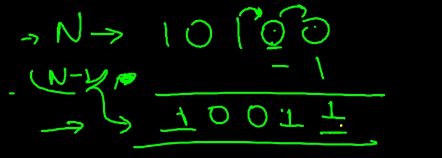 → N → 10100
- 1
(N-1) → 10011